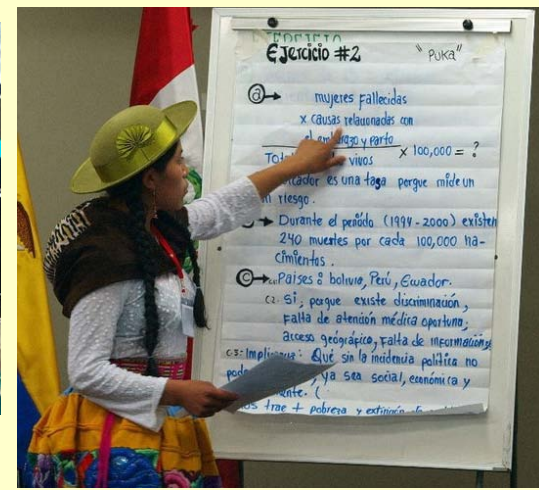 EJERCICIO
EJERCICIO #2 "PUKA"
ⓐ→ mujeres fallecidas
x causas relacionadas con
el embarazo y parto
Total vivos x 100,000 = ?
es una tasa porque mide un
riesgo.
→ Durante el período (1994-2000) existen
240 muertes por cada 100,000 na-
cimientos.
ⓒ→ Países: bolivia, Perú, Ecuador.
C2. Si, porque existe discriminación,
Falta de atención médica oportuna,
acceso geográfico, falta de información,
C.3: Que sin la incidencia política no
ya sea social, económica y
trae + pobreza y extinción